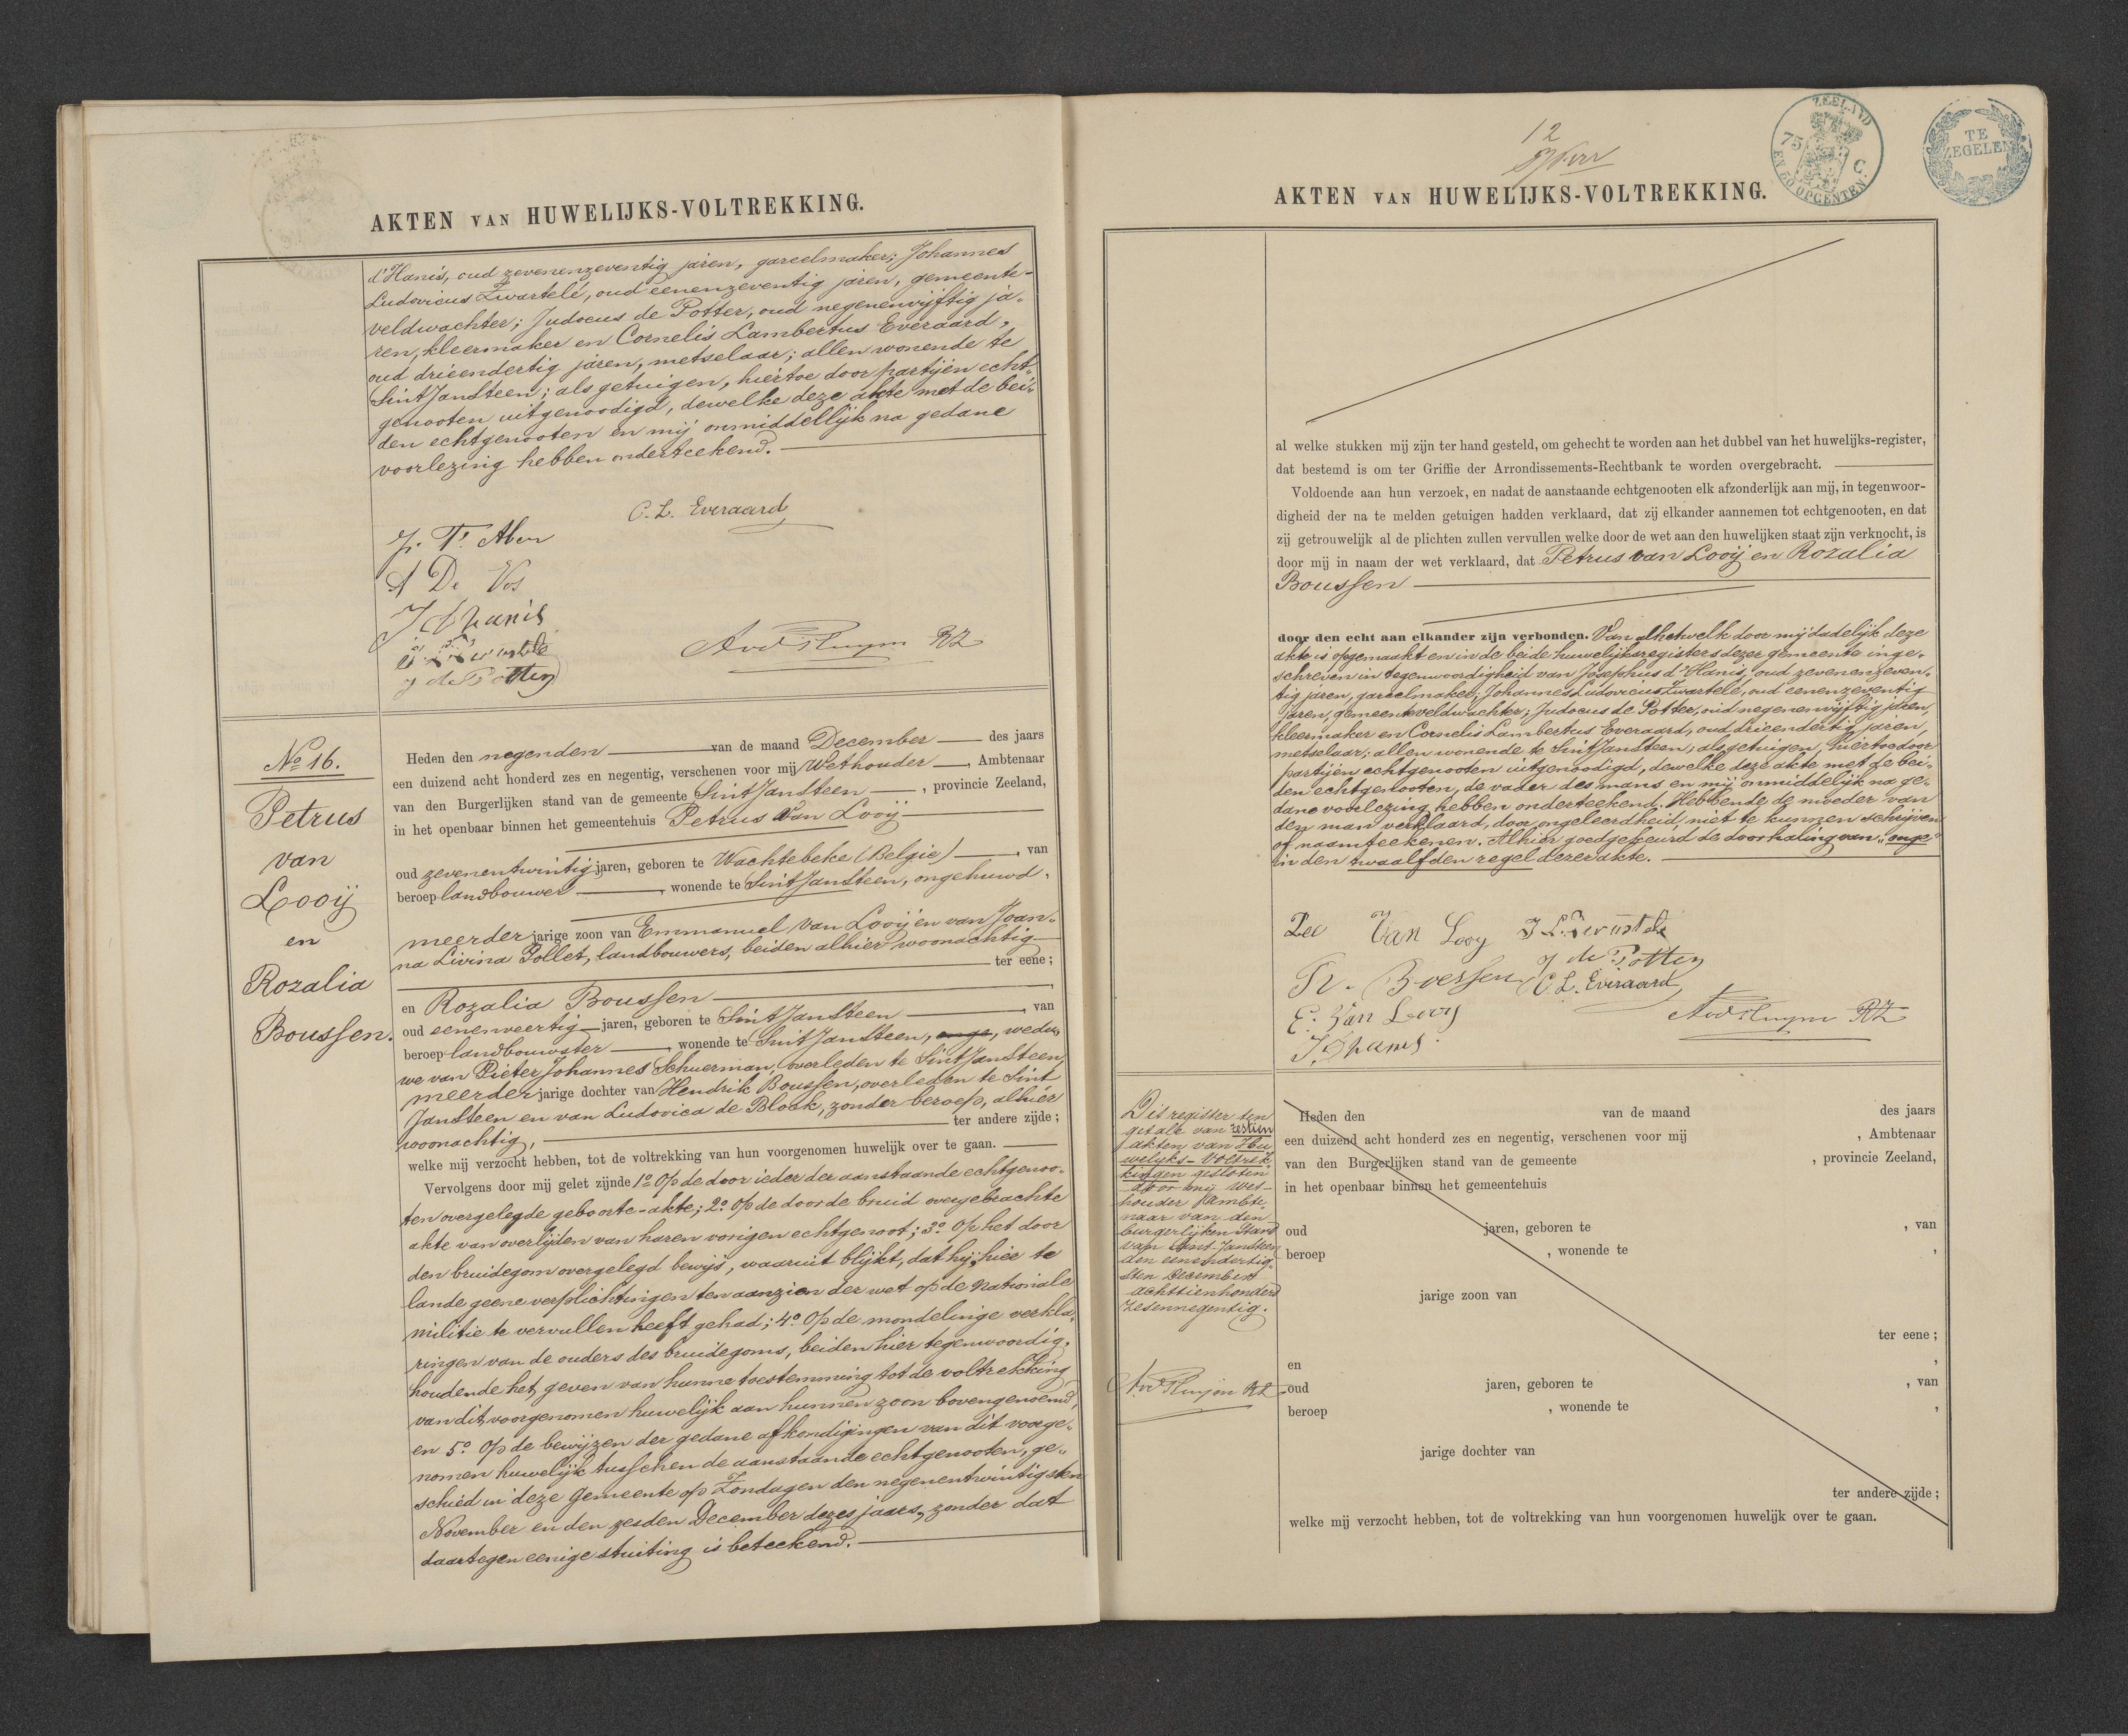 AKTEN VAN HUWELIJKS-VOLTREKKING.
d'Hanis, oud zevenenzeventig jaren, gareelmaker; Johannes
Ludovicus Zwartelé, oud eenenzeventig jaren, gemeente-
veldwachter; Judocus de Potter, oud negenenvijftig ja-
ren, kleermaker en Cornelis Lambertus Everaard,
oud drieendertig jaren, metselaar; allen wonende te
Sint Jansteen; als getuigen, hiertoe door partijen echt-
genooten uitgenoodigd, dewelke deze akte met de bei-
den echtgenooten en mij onmiddellijk na gedane
voorlezing hebben onderteekend.
C. L. Everaard
A De Vos
J d'hanis
J de Potter
No 16.
Petrus
van
Looij
en
Rozalia
Boussen.
Heden den negenden van de maand December des jaars
een duizend acht honderd zes en negentig, verschenen voor mij Wethouder, Ambtenaar
van den Burgerlijken stand van de gemeente Sint Jansteen, provincie Zeeland,
in het openbaar binnen het gemeentehuis Petrus Van Looij
oud zevenentwintig jaren, geboren te Wachtebeke (Belgie), van
beroep landbouwer, wonende te Sint Jansteen, ongehuwd,
meerder jarige zoon van Emmanuel Van Looij en van Joan-
na Livina Pollet, landbouwers, beiden alhier woonachtig
ter eene;
en Rozalia Boussen
oud eenenveertig jaren, geboren te Sint Jansteen, van
beroep landbouwster, wonende te Sint Jansteen, onge, wedu-
we van Pieter Johannes Schuerman, overleden te Sint Jansteen,
meerder jarige dochter van Hendrik Boussen, overleden te Sint
Jansteen en van Ludovica de Block, zonder beroep, alhier
woonachtig, ter andere zijde;
welke mij verzocht hebben, tot de voltrekking van hun voorgenomen huwelijk over te gaan.
Vervolgens door mij gelet zijnde 1o Op de door ieder der aanstaande echtgenoo-
ten overgelegde geboorte-akte; 2o Op de door de bruid overgebrachte
akte van overlijden van haren vorigen echtgenoot; 3o Op het door
den bruidegom overgelegd bewijs, waaruit blijkt, dat hij hier te
lande geene verplichtingen ten aanzien der wet op de nationale
militie te vervullen heeft gehad; 4o Op de mondelinge verkla-
ringen van de ouders des bruidegoms, beiden hier tegenwoordig,
houdende het geven van hunne toestemming tot de voltrekking
van dit voorgenomen huwelijk aan hunnen zoon bovengenoemd,
en 5o Op de bewijzen der gedane afkondigingen van dit voorge-
nomen huwelijk tusschen de aanstaande echtgenooten, ge-
schied in deze Gemeente op Zondagen den negenentwintigsten
November en den zesden December dezes jaars, zonder dat
daartegen eenige stuiting is beteekend.
12
ZEELAND
75 C
EN 50 OPCENTEN.
TE
ZEGELEN
AKTEN VAN HUWELIJKS-VOLTREKKING.
al welke stukken mij zijn ter hand gesteld, om gehecht te worden aan het dubbel van het huwelijks-register,
dat bestemd is om ter Griffie der Arrondissements-Rechtbank te worden overgebracht.
Voldoende aan hun verzoek, en nadat de aanstaande echtgenooten elk afzonderlijk aan mij, in tegenwoor-
digheid der na te melden getuigen hadden verklaard, dat zij elkander aannemen tot echtgenooten, en dat
zij getrouwelijk al de plichten zullen vervullen welke door de wet aan den huwelijken staat zijn verknocht, is
door mij in naam der wet verklaard, dat Petrus van Looij en Rozalia
Boussen
door den echt aan elkander zijn verbonden. Van al hetwelk door mij dadelijk deze
akte is opgemaakt en in de beide huwelijksregisters dezer gemeente inge-
schreven in tegenwoordigheid van Josephus d'Hanis, oud zevenenzeven-
tig jaren, gareelmaker; Johannes Ludovicus Zwartelé, oud eenenzeventig
jaren, gemeenteveldwachter; Judocus de Potter, oud negenenvijftig jaren,
kleermaker en Cornelis Lambertus Everaard, oud drieendertig jaren,
metselaar; allen wonende te Sint Jansteen, als getuigen, hiertoe door
partijen echtgenooten uitgenoodigd, dewelke deze akte met de bei-
den echtgenooten, de vader des mans en mij onmiddelijk na ge-
dane voorlezing hebben onderteekend. Hebbende de moeder van
den man verklaard, door ongeleerdheid niet te kunnen schrijven
of naamteekenen. Alhier goedgekeurd de doorhaling van "onge"
in den twaalfden regel dezer akte.
Van Looy
J de Potter
C. L. Everaard
E. Van Looy
J. Dhanis
Dit register ten
getale van zestien
akten van Hu-
welijks-Voltrek-
kingen gesloten
door mij Wet-
houder Ambte-
naar van den
burgerlijken Stand
van Sint-Jansteen
den eenendertig-
sten December
achttienhonderd
zesennegentig.
Heden den van de maand des jaars
een duizend acht honderd zes en negentig, verschenen voor mij , Ambtenaar
van den Burgerlijken stand van de gemeente , provincie Zeeland,
in het openbaar binnen het gemeentehuis
oud jaren, geboren te , van
beroep , wonende te ,
jarige zoon van
ter eene;
en ,
oud jaren, geboren te , van
beroep , wonende te ,
jarige dochter van
ter andere zijde;
welke mij verzocht hebben, tot de voltrekking van hun voorgenomen huwelijk over te gaan.